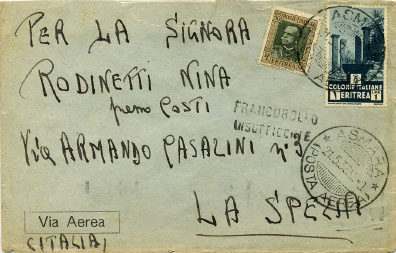 PER LA SIGNORA
RODINETTI NINA
presso COSTI
Via ARMANDO CASALINI n° 3
LA SPEZIA
Via Aerea
(ITALIA)
FRANCOBOLLO
INSUFFICIENTE
ERITREA
COLONIE ITALIANE
ERITREA
ASMARA
ASMARA
(POSTA AEREA)